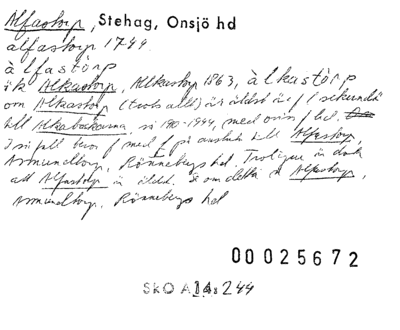 Alfastorp, Stehag, Onsjö hd
alfastorp 1744
àlfastòrp
sk Alkastorp, Allkastorp 1863, àlkastòrp
om Alkastorp (trots allt) är äldst är f l sekundä
till Alkabackarna, si 1910-1944, (med orims f bel.
I så fall beror f med f på anslutn till Alfastorp,
Asmundtorp, Rönnebergs hd. Troligare är dock
att Alfastorp är äldst. Se om detta Alfastorp,
Asmundtorp, Rönnebergs hd
00025672
SkO A 14: 244